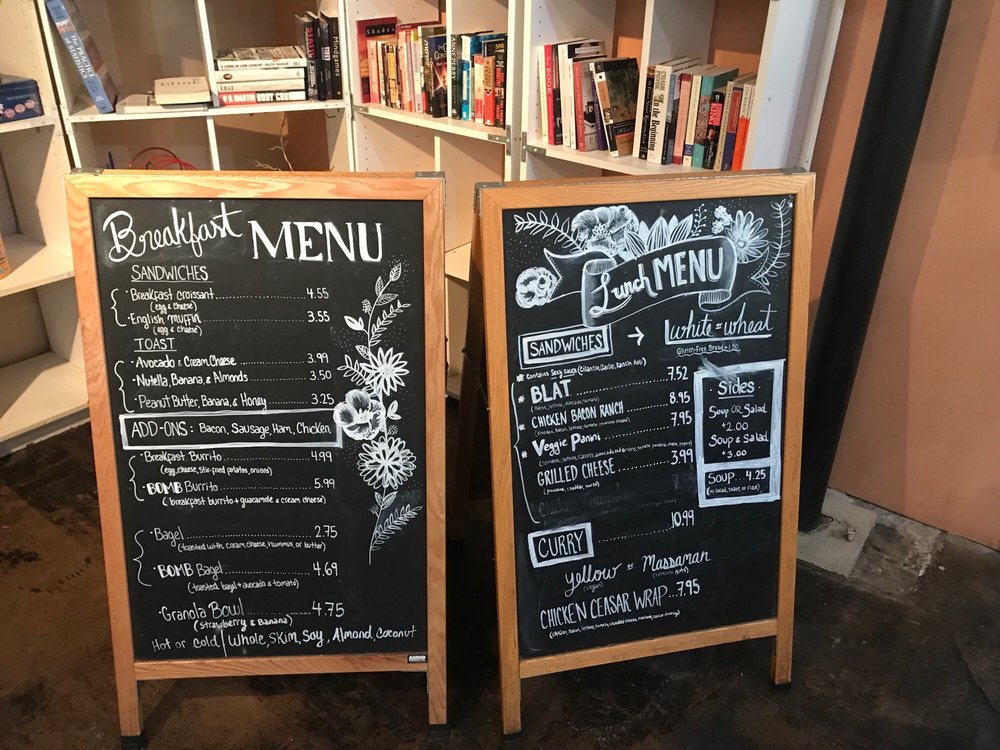 THE PRACTICE OF STATISTICS
Shades
MARTIN BODY COUNT
Minigames
ANNE PERRY
the BOOK
in the Beginning
Breakfast MENU
SANDWICHES
· Breakfast croissant 4.55
(egg & cheese)
· English muffin 3.55
(egg & cheese)
TOAST
· Avocado & Cream Cheese 3.99
· Nutella, Banana, & Almonds 3.50
· Peanut Butter, Banana, & Honey 3.25
ADD-ONS: Bacon, Sausage, Ham, Chicken
· Breakfast Burrito 4.99
(egg, cheese, stir-fried potatos, onions)
· BOMB Burrito 5.99
(breakfast burrito + guacamole & cream cheese)
· Bagel 2.75
(toasted with cream cheese, hummus, or butter)
· BOMB Bagel 4.69
(toasted bagel + avocado & tomato)
· Granola Bowl 4.75
(strawberry & Banana)
Hot or cold / Whole, Skim, Soy, Almond, Coconut
Lunch MENU
SANDWICHES → white or wheat
Gluten-Free Bread +1.50
* Contains Sexy Sauce (Cilantro, Garlic, Ranch Aioli)
* BLAT 7.52
(bacon, lettuce, avocado, tomato)
* CHICKEN BACON RANCH 8.95
* Veggie Panini 7.95
GRILLED CHEESE 3.99
(provolone, cheddar, swiss)
Sides
Soup OR Salad
+2.00
Soup & Salad
+3.00
SOUP...4.25
(w/ salad, toast, or rice)
CURRY 10.99
yellow or Massaman
(vegan)
CHICKEN CEASAR WRAP...7.95